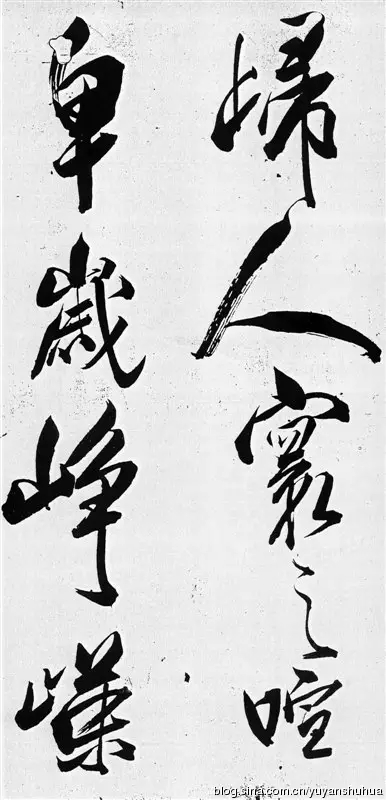 歸人寰之喧
卑歲崢嶸
blog.sina.com.cn/yuyanshuhua